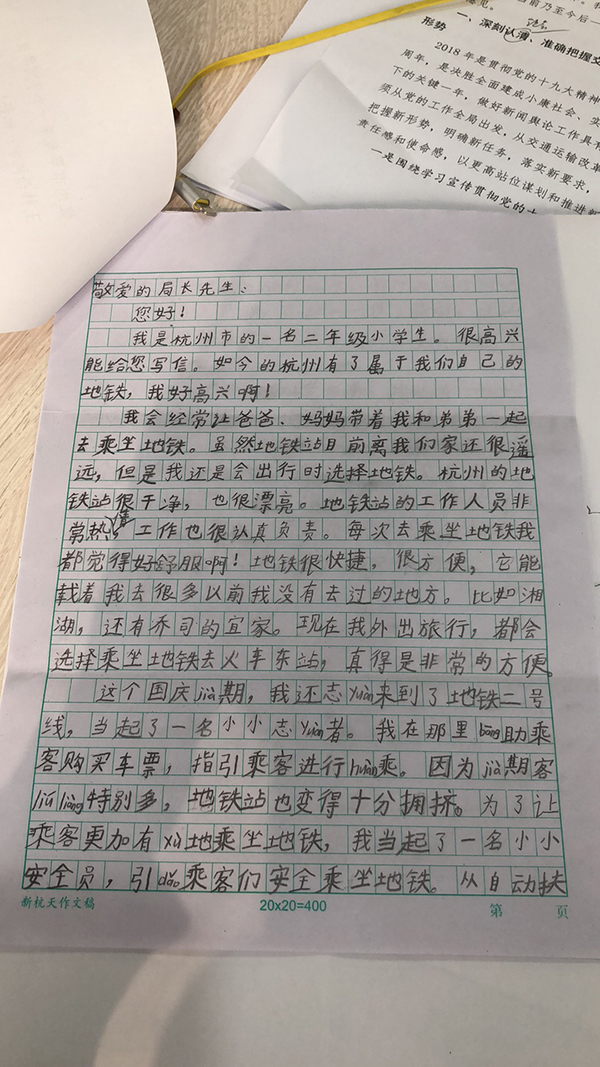 意见。
当前乃至今后一
一、深刻认清、准确把握交
形势
2018年是贯彻党的十九大精神
周年，是决胜全面建成小康社会、实
下的关键一年，做好新闻舆论工作具有
须从党的工作全局出发，从交通运输改革
把握新形势，明确新任务，落实新要求，
责任感和使命感，以更高站位谋划和推进新
一是围绕学习宣传贯彻党的十
敬爱的局长先生：
您好！
我是杭州市的一名二年级小学生。很高兴
能给您写信。如今的杭州有了属于我们自己的
地铁，我好高兴啊！
我会经常让爸爸、妈妈带着我和弟弟一起
去乘坐地铁。虽然地铁站目前离我们家还很遥
远，但是我还是会出行时选择地铁。杭州的地
铁站很干净，也很漂亮。地铁站的工作人员非
常热情，工作也很认真负责。每次去乘坐地铁我
都觉得好舒服啊！地铁很快捷，很方便，它能
载着我去很多以前我没有去过的地方。比如湘
湖，还有乔司的宜家。现在我外出旅行，都会
选择乘坐地铁去火车东站，真得是非常的方便。
这个国庆jià期，我还志yuàn来到了地铁二号
线，当起了一名小小志yuàn者。我在那里bāng助乘
客购买车票，指引乘客进行huàn乘。因为jià期客
liú liàng特别多，地铁站也变得十分拥挤。为了让
乘客更加有xù地乘坐地铁，我当起了一名小小
安全员，引dǎo乘客们安全乘坐地铁。从自动扶
新杭天作文稿
20x20=400
第 页